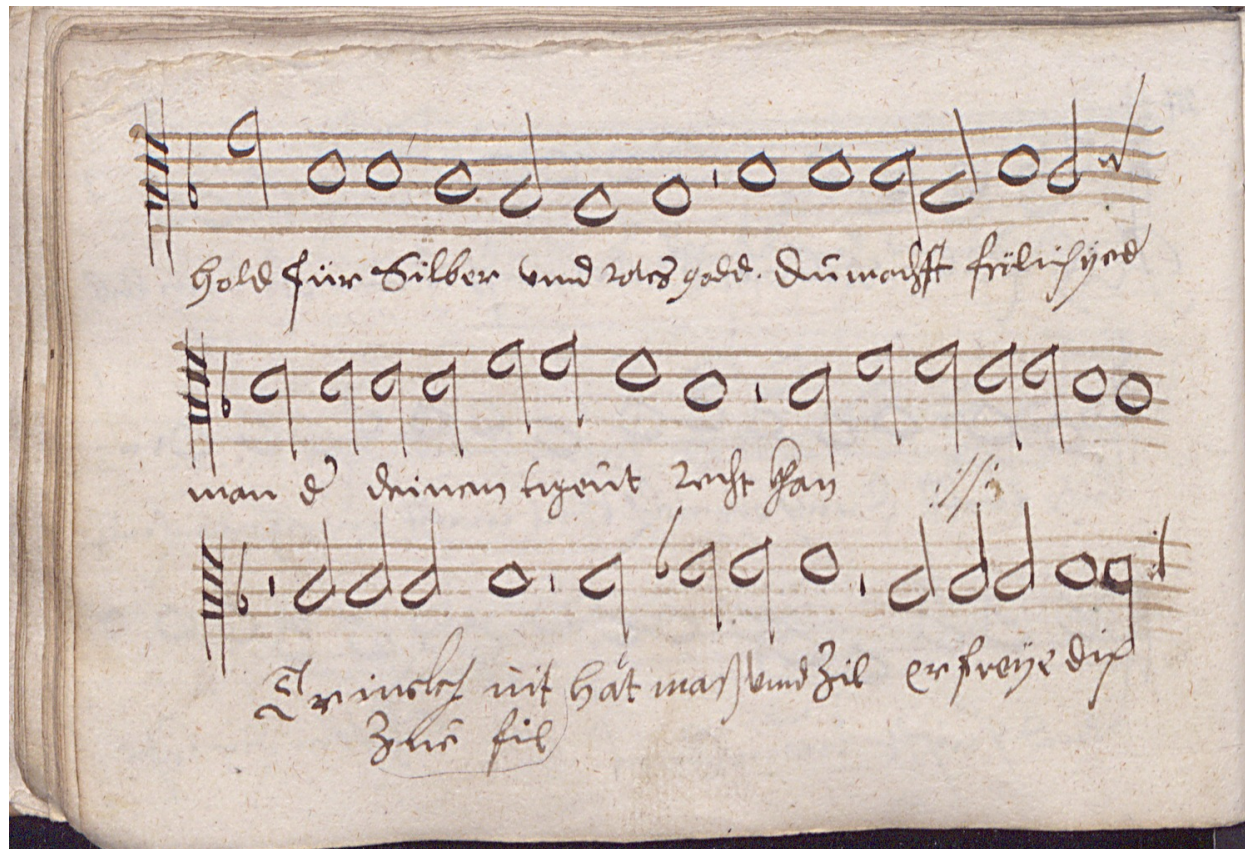 hold für Silber vnnd rotes gold. Du machst frölich yed
man d deinem tugent recht khan ://:
Trinckh nit hat maß vnnd Zil erfreye dis
Zue fil